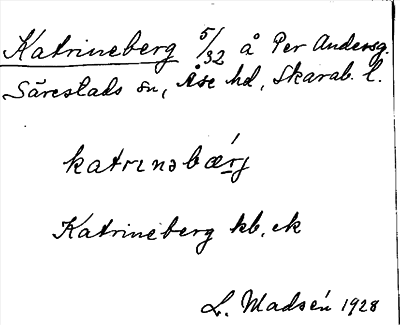 Katrineberg 5/32 å Per Andersg.
Särestads sn, Åse hd, Skarab. l.
katrɪnəbærj
Katrineberg kb, ek
L. Madsén 1928